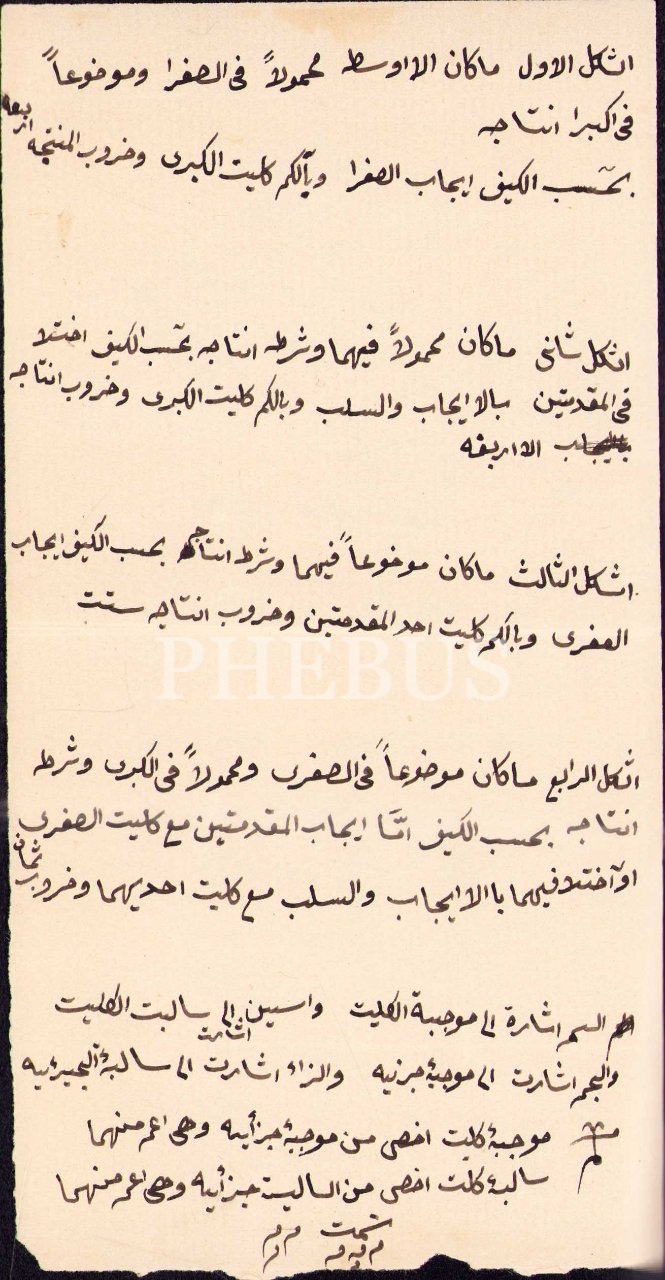 الشكل الاول ماكان الاوسط محمولاً فى الصغرا وموضوعاً
فى اكبرا انتاجه
بحسب الكيف ايجاب الصغرا وبالكم كليت الكبرى وضروب المنتجه اربعه
الشكل ثانى ماكان محمولاً فيهما وشرطه انتاجه بحسب الكيف اختلا
فى المقدمتين بالاايجاب والسلب وبالكم كليت الكبرى وضروب انتاجه
الااربعه
الشكل الثالث ماكان موضوعاً فيهما وشرط انتاجه بحسب الكيف ايجاب
الصغرى وبالكم كليت احد المقدمتين وضروب انتاجه ستت
PHEBUS
الشكل الرابع ماكان موضوعاً فى الصغرى ومحمولاً فى الكبرى وشرطه
انتاجه بحسب الكيف امّا ايجاب المقدمتين مع كليت الصغرى
او اختلافيهما باالاايجاب والسلب مع كليت احديهما وضروب ثمان
اشارة الى موجبة الكليت واسين اشارت الى سالبت الكليت
والجم اشارت الى موجبۀ جزئيه والزاء اشارت الى سالبۀ الجزئيه
موجبۀ كليت اخص من موجبۀ جزأيه وهى اعم منهما
سالبۀ كلت اخص من السالبة جزأيه وهى اعم منهما
تمت